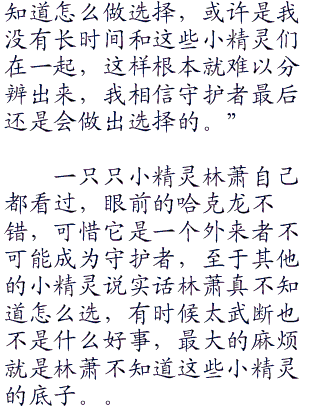 知道怎么做选择，或许是我
没有长时间和这些小精灵们
在一起，这样根本就难以分
辨出来，我相信守护者最后
还是会做出选择的。”
一只只小精灵林萧自己
都看过，眼前的哈克龙不
错，可惜它是一个外来者不
可能成为守护者，至于其他
的小精灵说实话林萧真不知
道怎么选，有时候太武断也
不是什么好事，最大的麻烦
就是林萧不知道这些小精灵
的底子。。